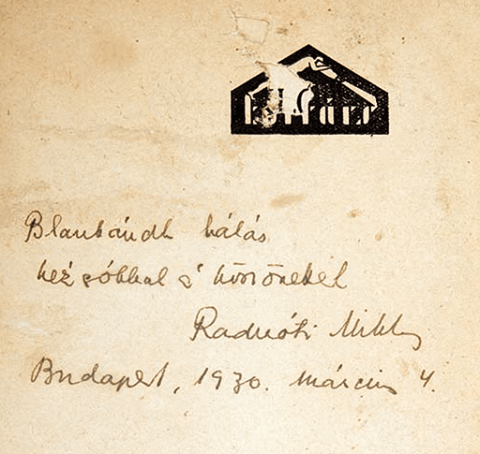 kortárs
Blankának hálás
kézcsókkal s köszönettel
Radnóti Miklós
Budapest, 1930. március 4.